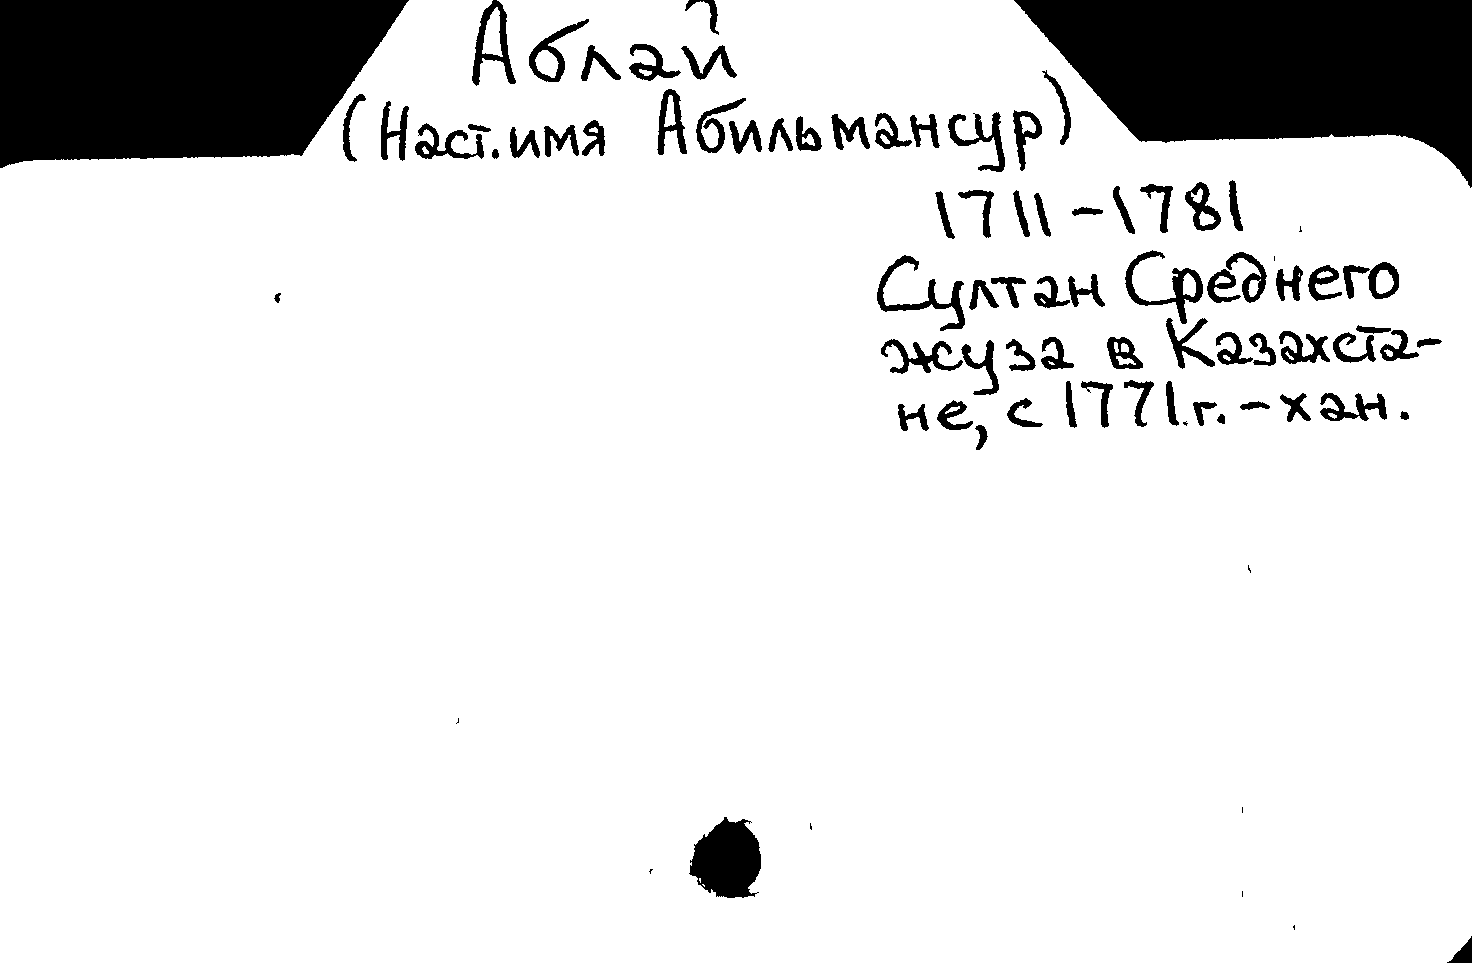 Аблай
(Наст.имя Абильмансур)
1711-1781
Султан Среднего
жуза в Казахста-
не, с 1771.г. - хан.